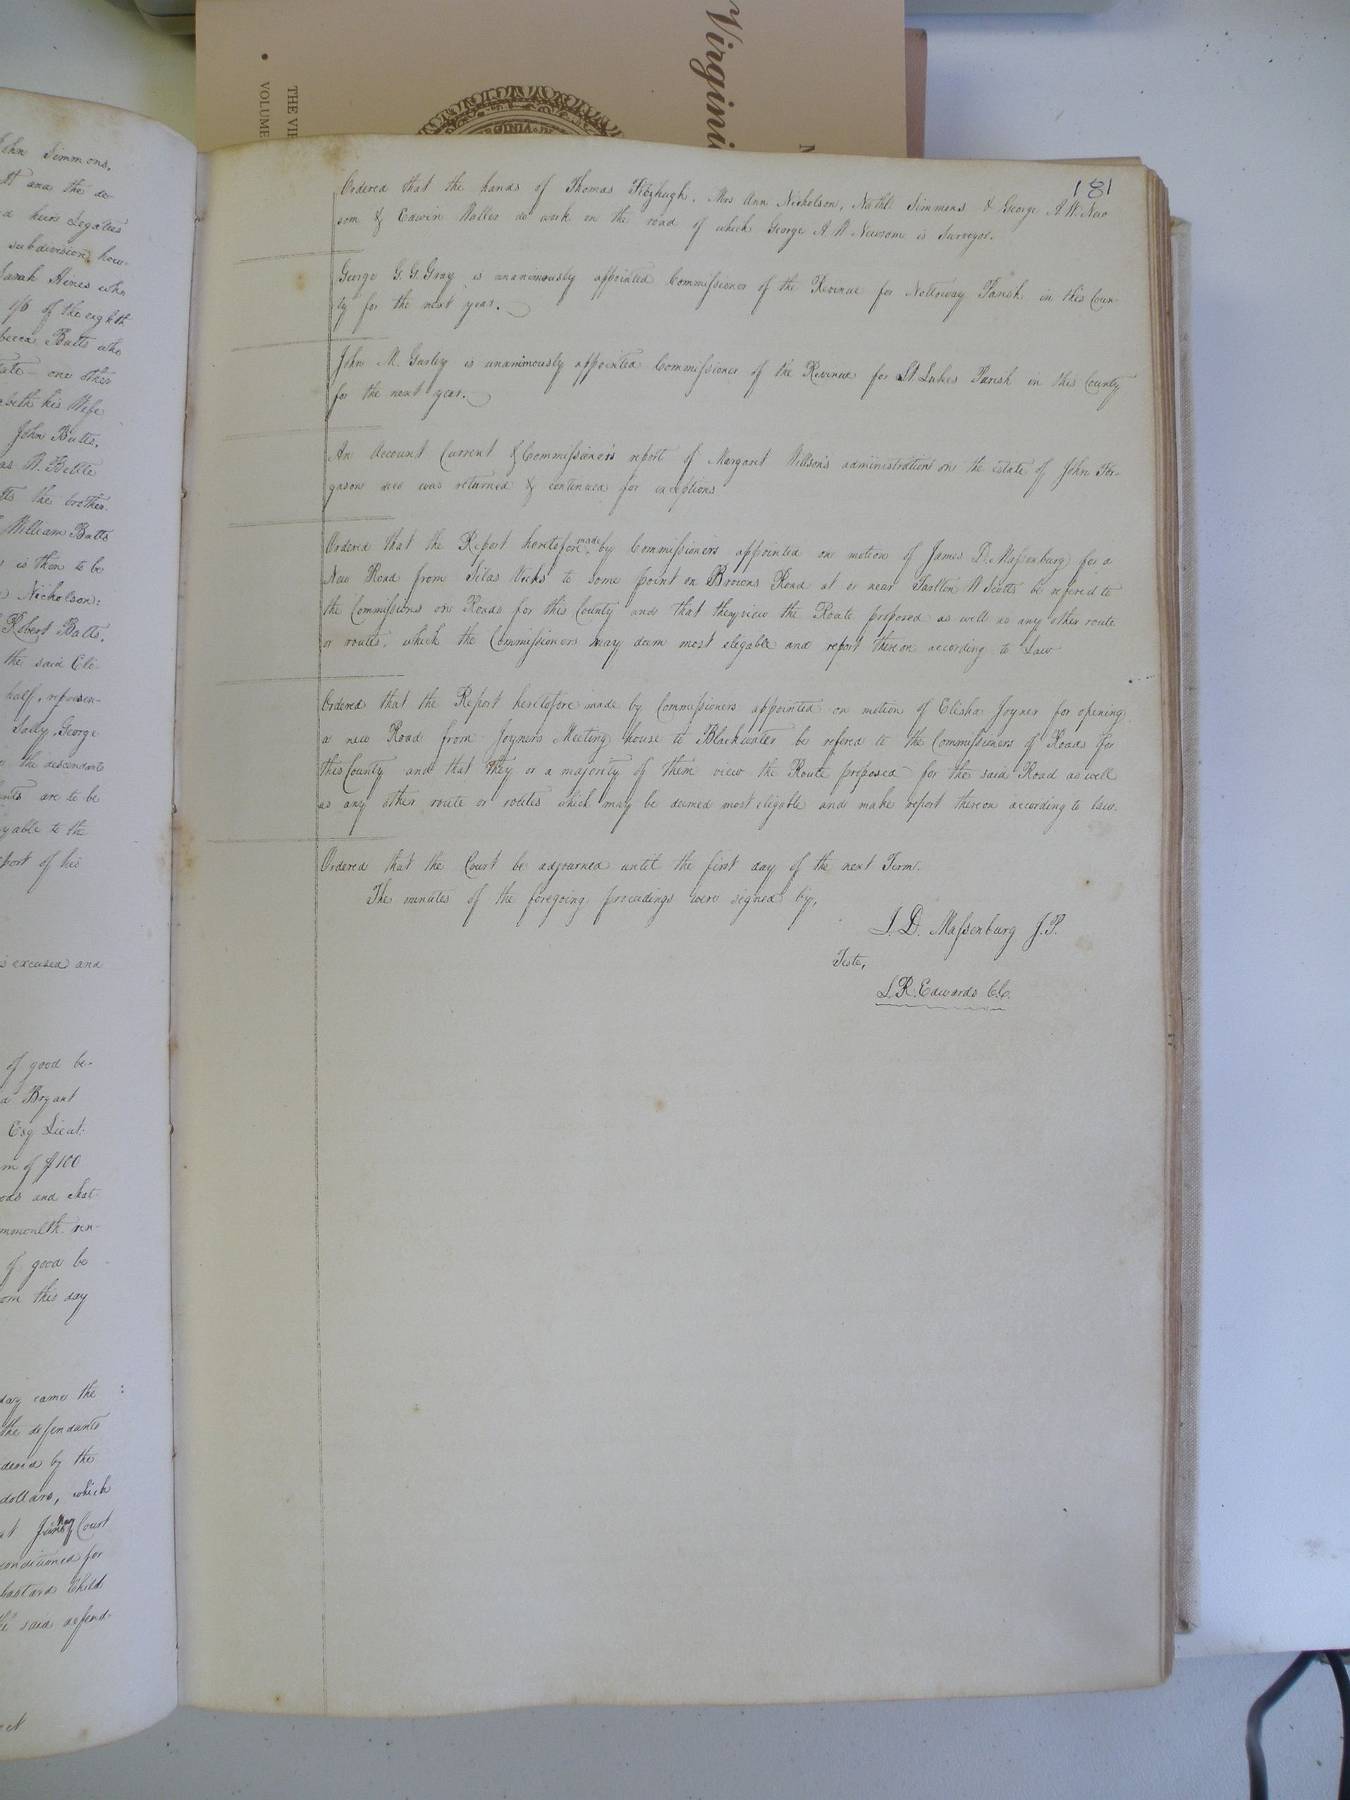 Virgini
THE VI
VOLUME
John Simmons.
tt and the de
d heirs Legatees
subdivision, how-
Sarah Hines who
1/6 of the eighth
becca Butts who
tate - one other
abeth his Wife
John Butts,
as W. Bettle
tts the brother
William Butts
is then to be
Nicholson:
Robert Butts,
the said Eli
half, represen-
Sally, George
the descendants
ents are to be
yable to the
port of his
is excused and
of good be-
a Bryant
Esq Lieut:
m of $100
ods and chat-
mmonlth. ren-
of good be
om this day
day came the
the defendants
dered by the
dollars, which
at June Court
conditioned for
bastard Child
the said defend-
181
Ordered that the hands of Thomas Fitzhugh, Mrs Ann Nicholson, Nathl Simmons & George A W. New
som & Edwin Waller do work on the road of which George A W Newsom is Surveyor.
George G. G. Gray is unanimously appointed Commissioner of the Revenue for Nottoway Parish in this Coun-
ty for the next year.
John M. Gurley is unanimously appointed Commissioner of the Revenue for St Lukes Parish in this County
for the next year.
An Account Current & Commissioners report of Margaret Willson's administration on the estate of John Fer-
gason decd was returned & continued for exceptions
Ordered that the Report heretofore made by Commissioners appointed on motion of James D. Massenburg for a
New Road from Silas Vicks to some point on Browns Road at or near Tarlton W Scotts be refered to
the Commissions on Roads for this County and that they view the Route proposed as well as any other route
or routes, which the Commissioners may deem most elegable and report thereon according to Law
Ordered that the Report heretofore made by Commissioners appointed on motion of Elisha Joyner for opening
a new Road from Joyners Meeting house to Blackwater be refered to the Commissioners of Roads for
this County and that they or a majority of them view the Route proposed for the said Road as well
as any other route or routes which may be deemed most eligable and make report thereon according to law.
Ordered that the Court be adjourned until the first day of the next Term.
The minutes of the foregoing proceedings were signed by,
J. D. Massenburg J. P.
Teste,
L. R. Edwards C.C.